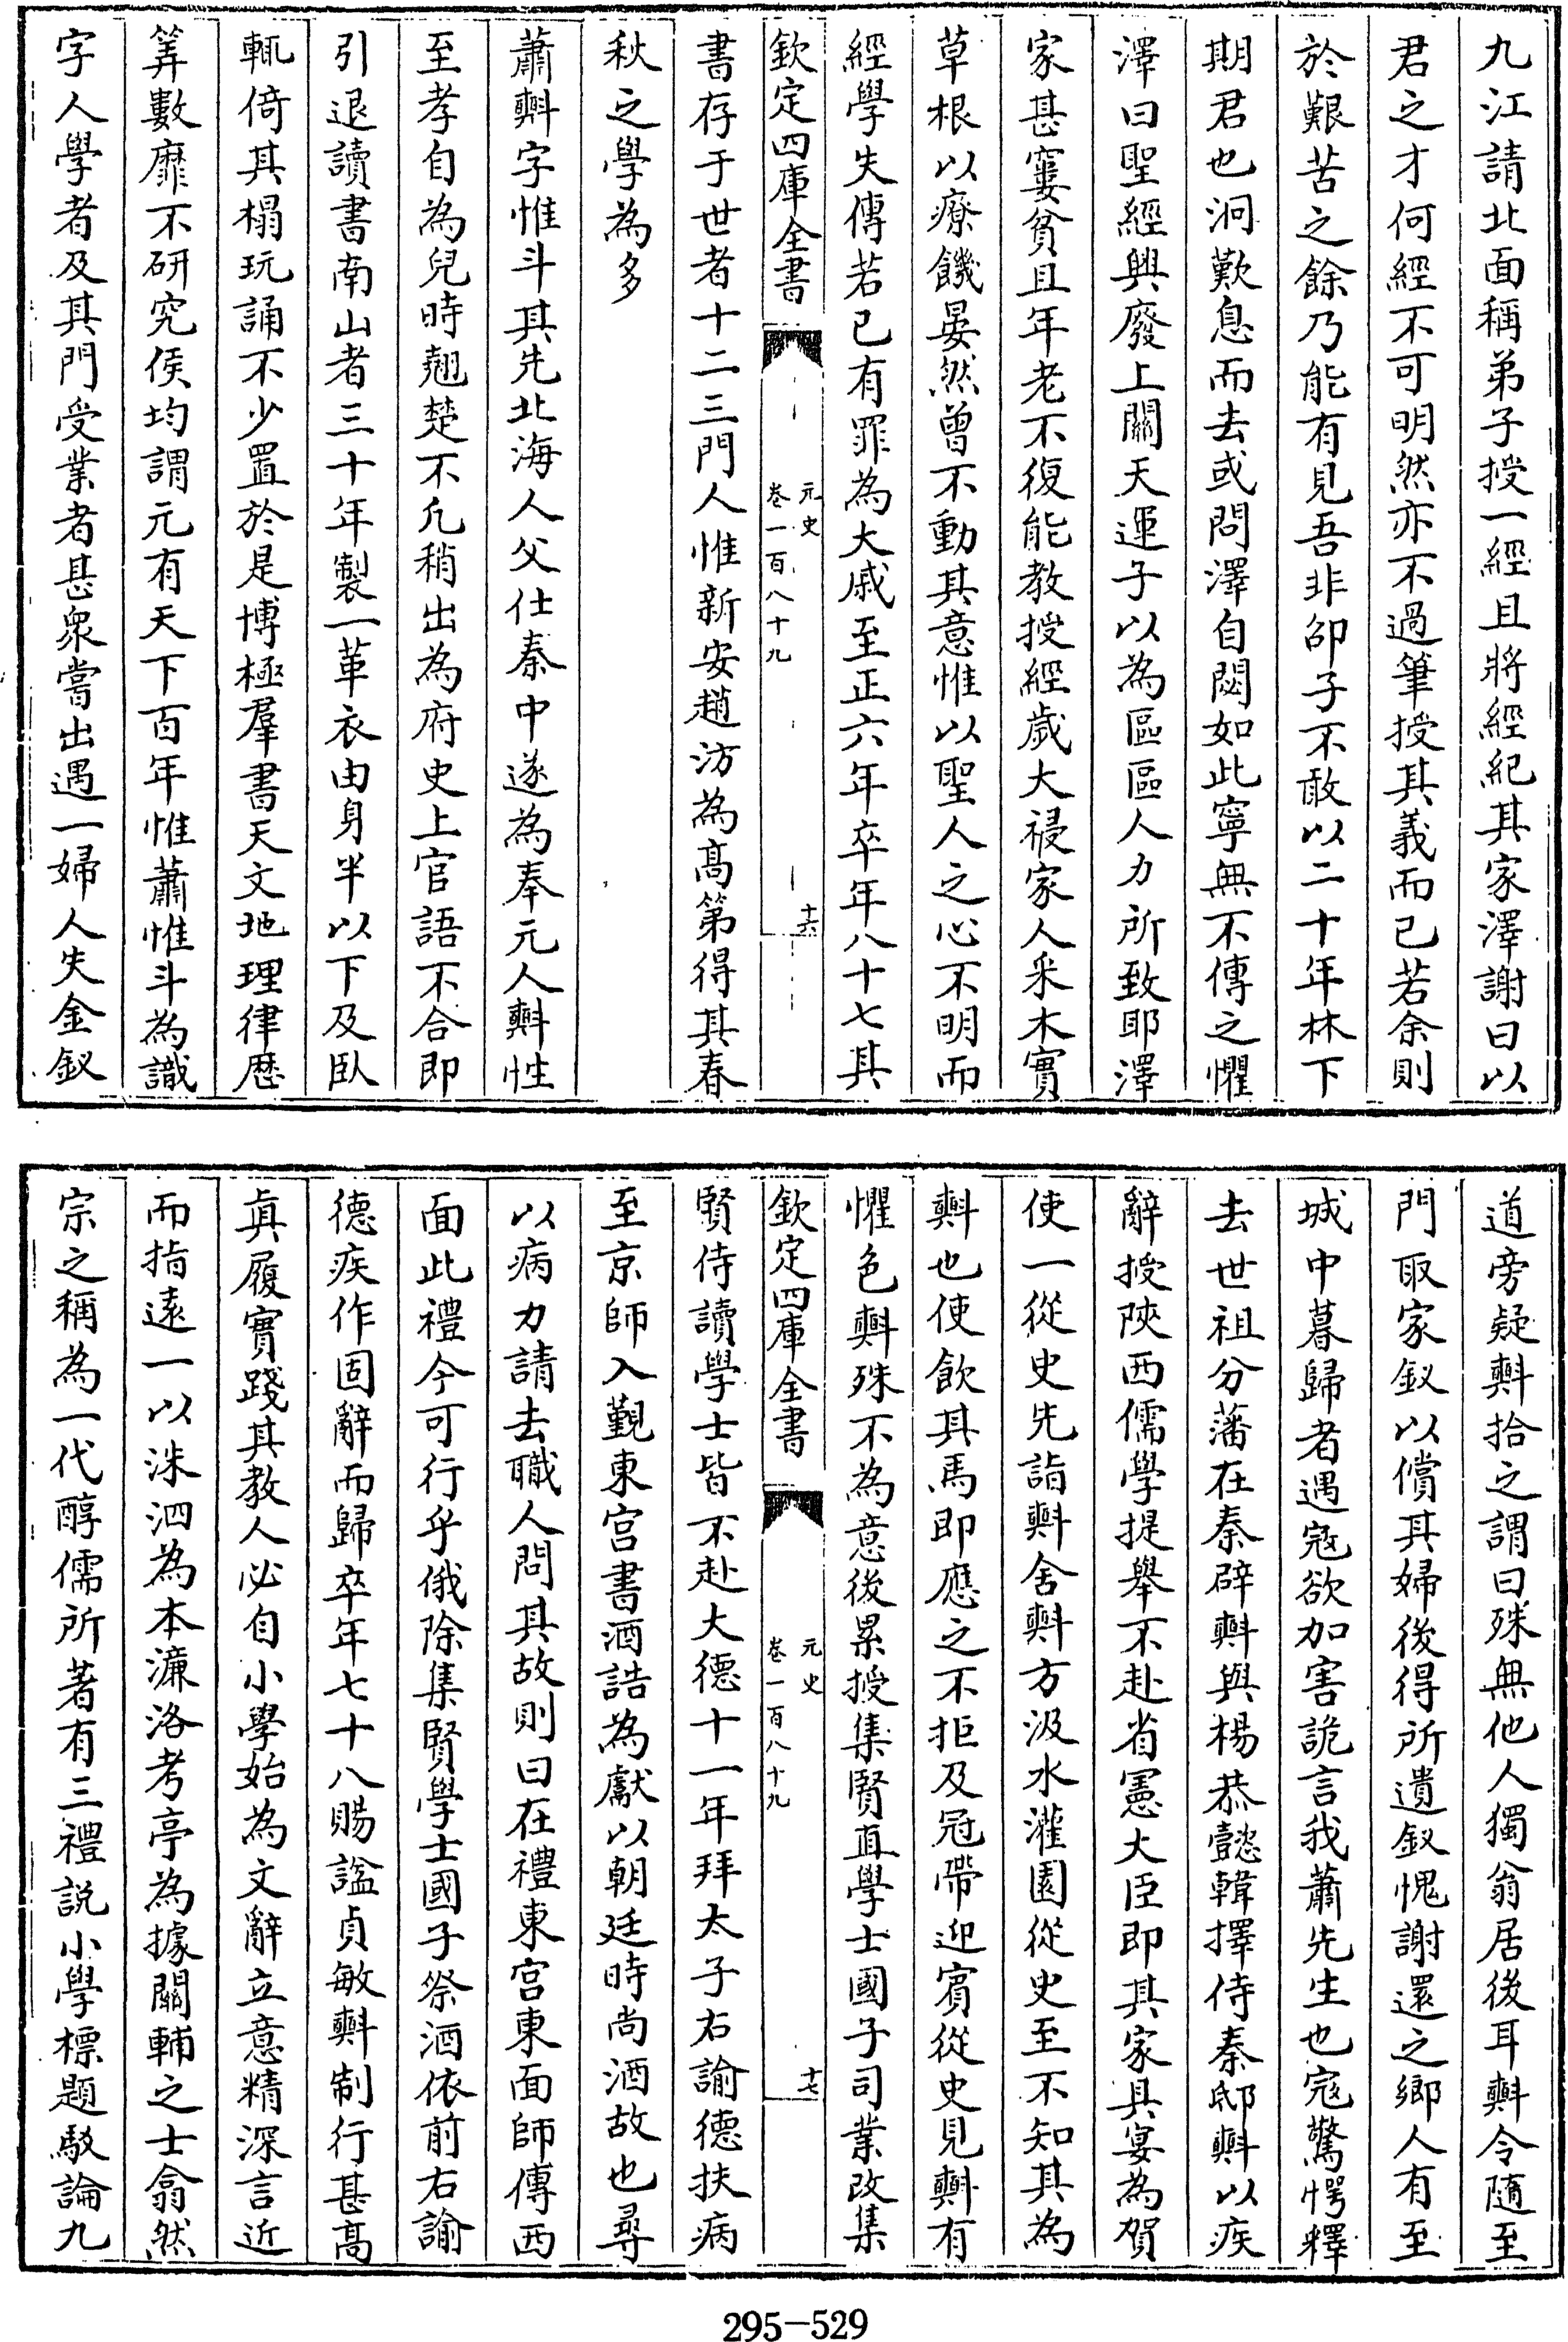 九江請北面稱弟子授一經且將經紀其家澤謝曰以
君之才何經不可明然亦不過筆授其義而已若余則
於艱苦之餘乃能有見吾非邵子不敢以二十年林下
期君也泂歎息而去或問澤自閟如此寧無不傳之懼
澤曰聖經興廢上關天運子以為區區人力所致耶澤
家甚窶貧且年老不復能教授經歲大祲家人采木實
草根以療饑晏然曾不動其意惟以聖人之心不明而
經學失傳若已有罪為大戚至正六年卒年八十七其
欽定四庫全書
元史
卷一百八十九
十六
書存于世者十二三門人惟新安趙汸為高第得其春
秋之學為多
蕭㪺字惟斗其先北海人父仕秦中遂為奉元人㪺性
至孝自為兒時翹楚不凡稍出為府史上官語不合即
引退讀書南山者三十年製一革衣由身半以下及臥
輒倚其榻玩誦不少置於是博極羣書天文地理律歷
筭數靡不研究侯均謂元有天下百年惟蕭惟斗為識
字人學者及其門受業者甚衆嘗出遇一婦人失金釵
道旁疑㪺拾之謂曰殊無他人獨翁居後耳㪺令隨至
門取家釵以償其婦後得所遺釵愧謝還之鄉人有至
城中暮歸者遇寇欲加害詭言我蕭先生也寇驚愕釋
去世祖分藩在秦辟㪺與楊恭懿韓擇侍秦邸㪺以疾
辭授陝西儒學提舉不赴省憲大臣即其家具宴為賀
使一從史先詣㪺舍㪺方汲水灌園從史至不知其為
㪺也使飲其馬即應之不拒及冠帶迎賓從史見㪺有
懼色㪺殊不為意後累授集賢直學士國子司業改集
欽定四庫全書
元史
卷一百八十九
十七
賢侍讀學士皆不赴大德十一年拜太子右諭德扶病
至京師入覲東宮書酒誥為獻以朝廷時尚酒故也尋
以病力請去職人問其故則曰在禮東宮東面師傅西
面此禮今可行乎俄除集賢學士國子祭酒依前右諭
德疾作固辭而歸卒年七十八賜諡貞敏㪺制行甚高
真履實踐其教人必自小學始為文辭立意精深言近
而指遠一以洙泗為本濂洛考亭為據關輔之士翕然
宗之稱為一代醇儒所著有三禮説小學標題駁論九
295-529